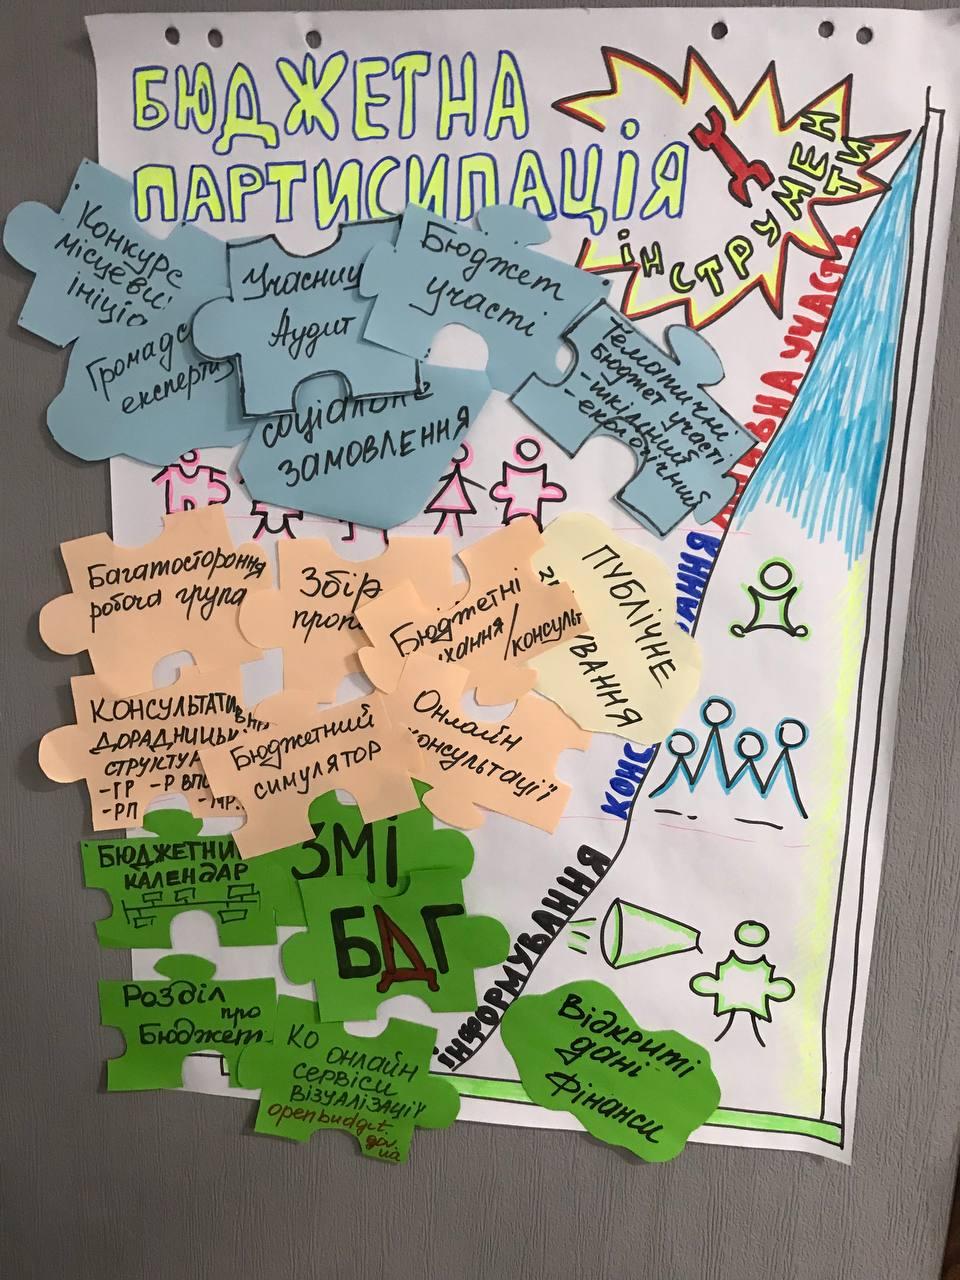 БЮДЖЕТНА
ПАРТИСИПАЦІЯ
ІНСТРУМЕН
ТИ
Конкурс
місцевії
ініціо
Громадс
експертиз
Учасниц
Аудит
Бюджет
участі
Тематичні
Бюджет участі
-шкільний
-екологічний
соціальне
ЗАМОВЛЕННЯ
АКТИВНА УЧАСТЬ
Багатостороння
робоча група
Збір
проп
Бюджетні
хання /консульт
ПУБЛІЧНЕ
ВАННЯ
КОНСУЛЬТАТИ
ВНІ
ДОРАДНИЦЬК
СТРУКТУР
-ГР -Р ВПО
-РП -МР..
Бюджетний
симулятор
Онлайн
консультації
КОНС
АННЯ
БЮДЖЕТНИ
КАЛЕНДАР
ЗМІ
БДГ
ІНФОРМУВАННЯ
Розділ
про
Бюджет
КО
ОНЛАЙН
СЕРВІСИ
ВІЗУАЛІЗАЦІЇ
openbudget.
gov.
ua
Відкриті
дані
Фінанси